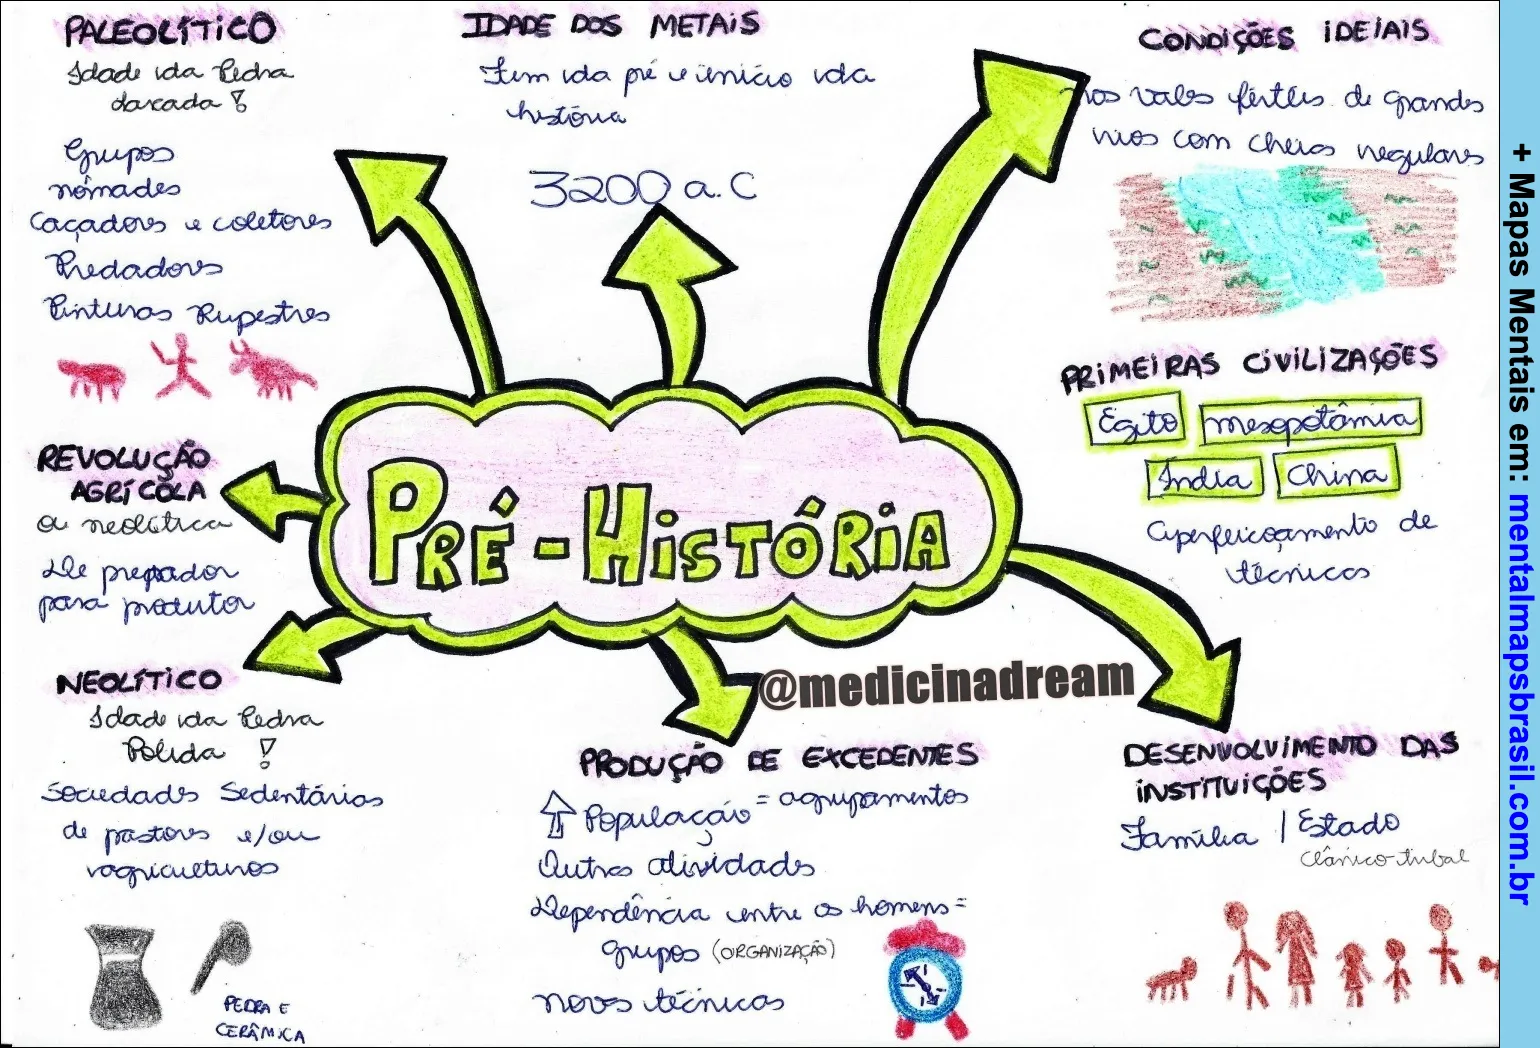 PALEOLÍTICO
Idade da Pedra
Lascada !
Grupos
nômades
Caçadores e coletores
Predadores
Pinturas Rupestres
IDADE DOS METAIS
Fim da pré e início da
história
3200 a.C
CONDIÇÕES IDEIAIS
nos vales férteis de grandes
rios com cheias regulares
PRIMEIRAS CIVILIZAÇÕES
Egito
mesopotâmia
Índia
China
aperfeiçoamento de
técnicas
REVOLUÇÃO
AGRÍCOLA
ou neolítica
De predador
para produtor
PRÉ-HISTÓRIA
NEOLÍTICO
Idade da Pedra
Polida !
Sociedades Sedentárias
de pastores e/ou
agricultores
PEDRA E
CERÂMICA
@medicinadream
PRODUÇÃO DE EXCEDENTES
População = agrupamentos
Outras atividades
Dependência entre os homens =
grupos (ORGANIZAÇÃO)
novas técnicas
DESENVOLVIMENTO DAS
INSTITUIÇÕES
Família / Estado
clânico-tribal
+ Mapas Mentais em: mentalmapsbrasil.com.br